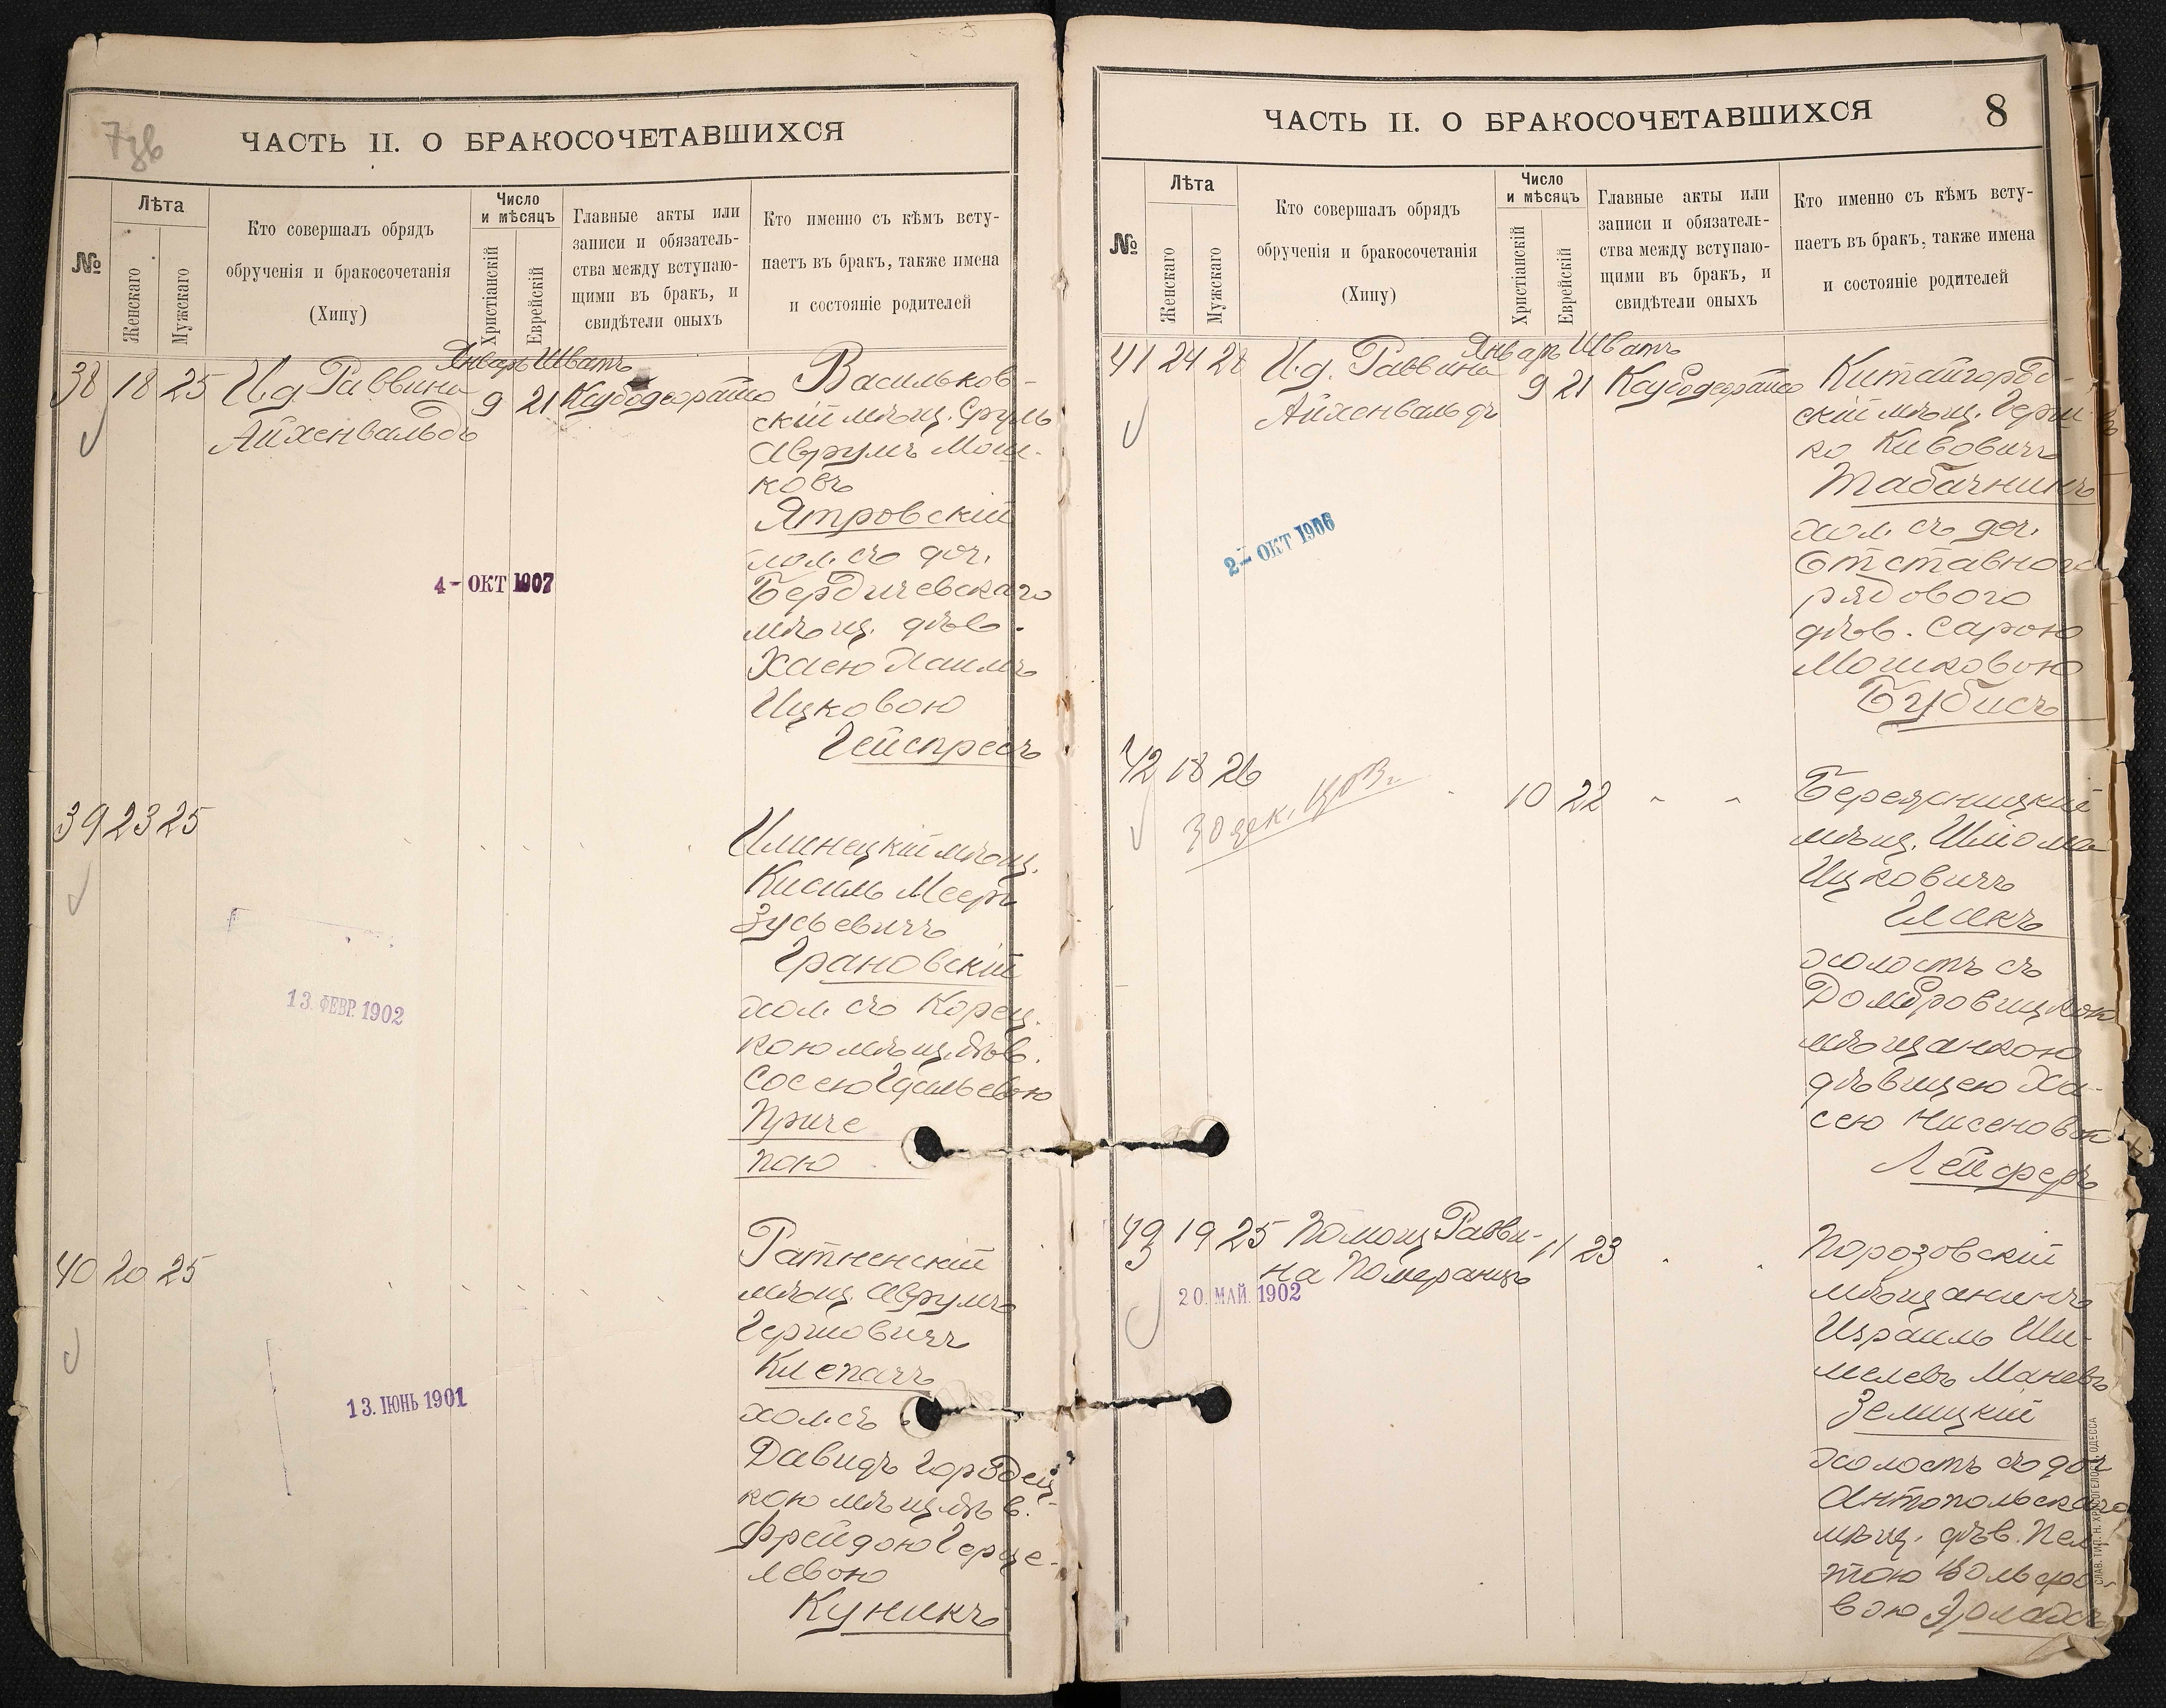 7зв
ЧАСТЬ II. О БРАКОСОЧЕТАВШИХСЯ
№
Лѣта
Женскаго
Мужскаго
Кто совершалъ обрядъ
обрученія и бракосочетанія
(Хипу)
Число
и мѣсяцъ
Христіанскій
Еврейскій
Главные акты или
записи и обязатель-
ства между вступаю-
щими въ бракъ, и
свидѣтели оныхъ
Кто именно съ кѣмъ всту-
паетъ въ бракъ, также имена
и состояніе родителей
Январь Шватъ
38 18 25 И.д. Раввина 9 21
Айхенвальдъ
Васильков-
скій мѣщ. Сруль
Аврумъ Мош-
ковъ
Ятровскій
хол. съ доч.
Бердичевскаго
мѣщ. дѣв.
Хаею
Ицковою
Гейспресъ
4- ОКТ 1907
39 23 25
Илинецкій мѣщ.
Кисиль Меер
Зусьевичъ
Грановскій
хол. съ Корец.
кою мѣщ. дѣв.
Сосею
Приче
пою
13. ФЕВР. 1902
40 20 25
Ратненскій
мѣщ. Аврумъ
Гершовичъ
Клепачъ
хол. съ
Давидъ Городец-
кою мѣщ. дѣв.
Фрейдою Герце-
левою
Куникъ
13. ІЮНЬ 1901
ЧАСТЬ II. О БРАКОСОЧЕТАВШИХСЯ
8
№
Лѣта
Женскаго
Мужскаго
Кто совершалъ обрядъ
обрученія и бракосочетанія
(Хипу)
Число
и мѣсяцъ
Христіанскій
Еврейскій
Главные акты или
записи и обязатель-
ства между вступаю-
щими въ бракъ, и
свидѣтели оныхъ
Кто именно съ кѣмъ всту-
паетъ въ бракъ, также имена
и состояніе родителей
Январь Шватъ
41 24 28 И.д. Раввина 9 21
Айхенвальдъ
Китайгород-
скій мѣщ. Герш
ко Кивовичъ
Табачникъ
хол. съ доч.
Отставного
рядового
дѣв. Сарою
Мошковою
Бубисъ
2- ОКТ 1906
42 18 26 10 22
30 дек. 1903 г.
Березницкій
мѣщ. Шлома
Ицковичъ
Глакъ
холостъ съ
Домбровицкою
мѣщанкою
дѣвицею Ха-
сею Нисеновой
Лейферъ
43 19 25 Помощ. Равви- 11 23
на Померанцъ
20. МАЙ. 1902
Порозовскій
мѣщанинъ
Израиль Ши-
мелевъ Маневъ
Зелицкій
холостъ съ доч
Антопольскаго
мѣщ. дѣв. Пел
тою Вольфо-
вою
СЛАВ. ТИП. Н. ХРИСОГЕЛОСЪ, ОДЕССА